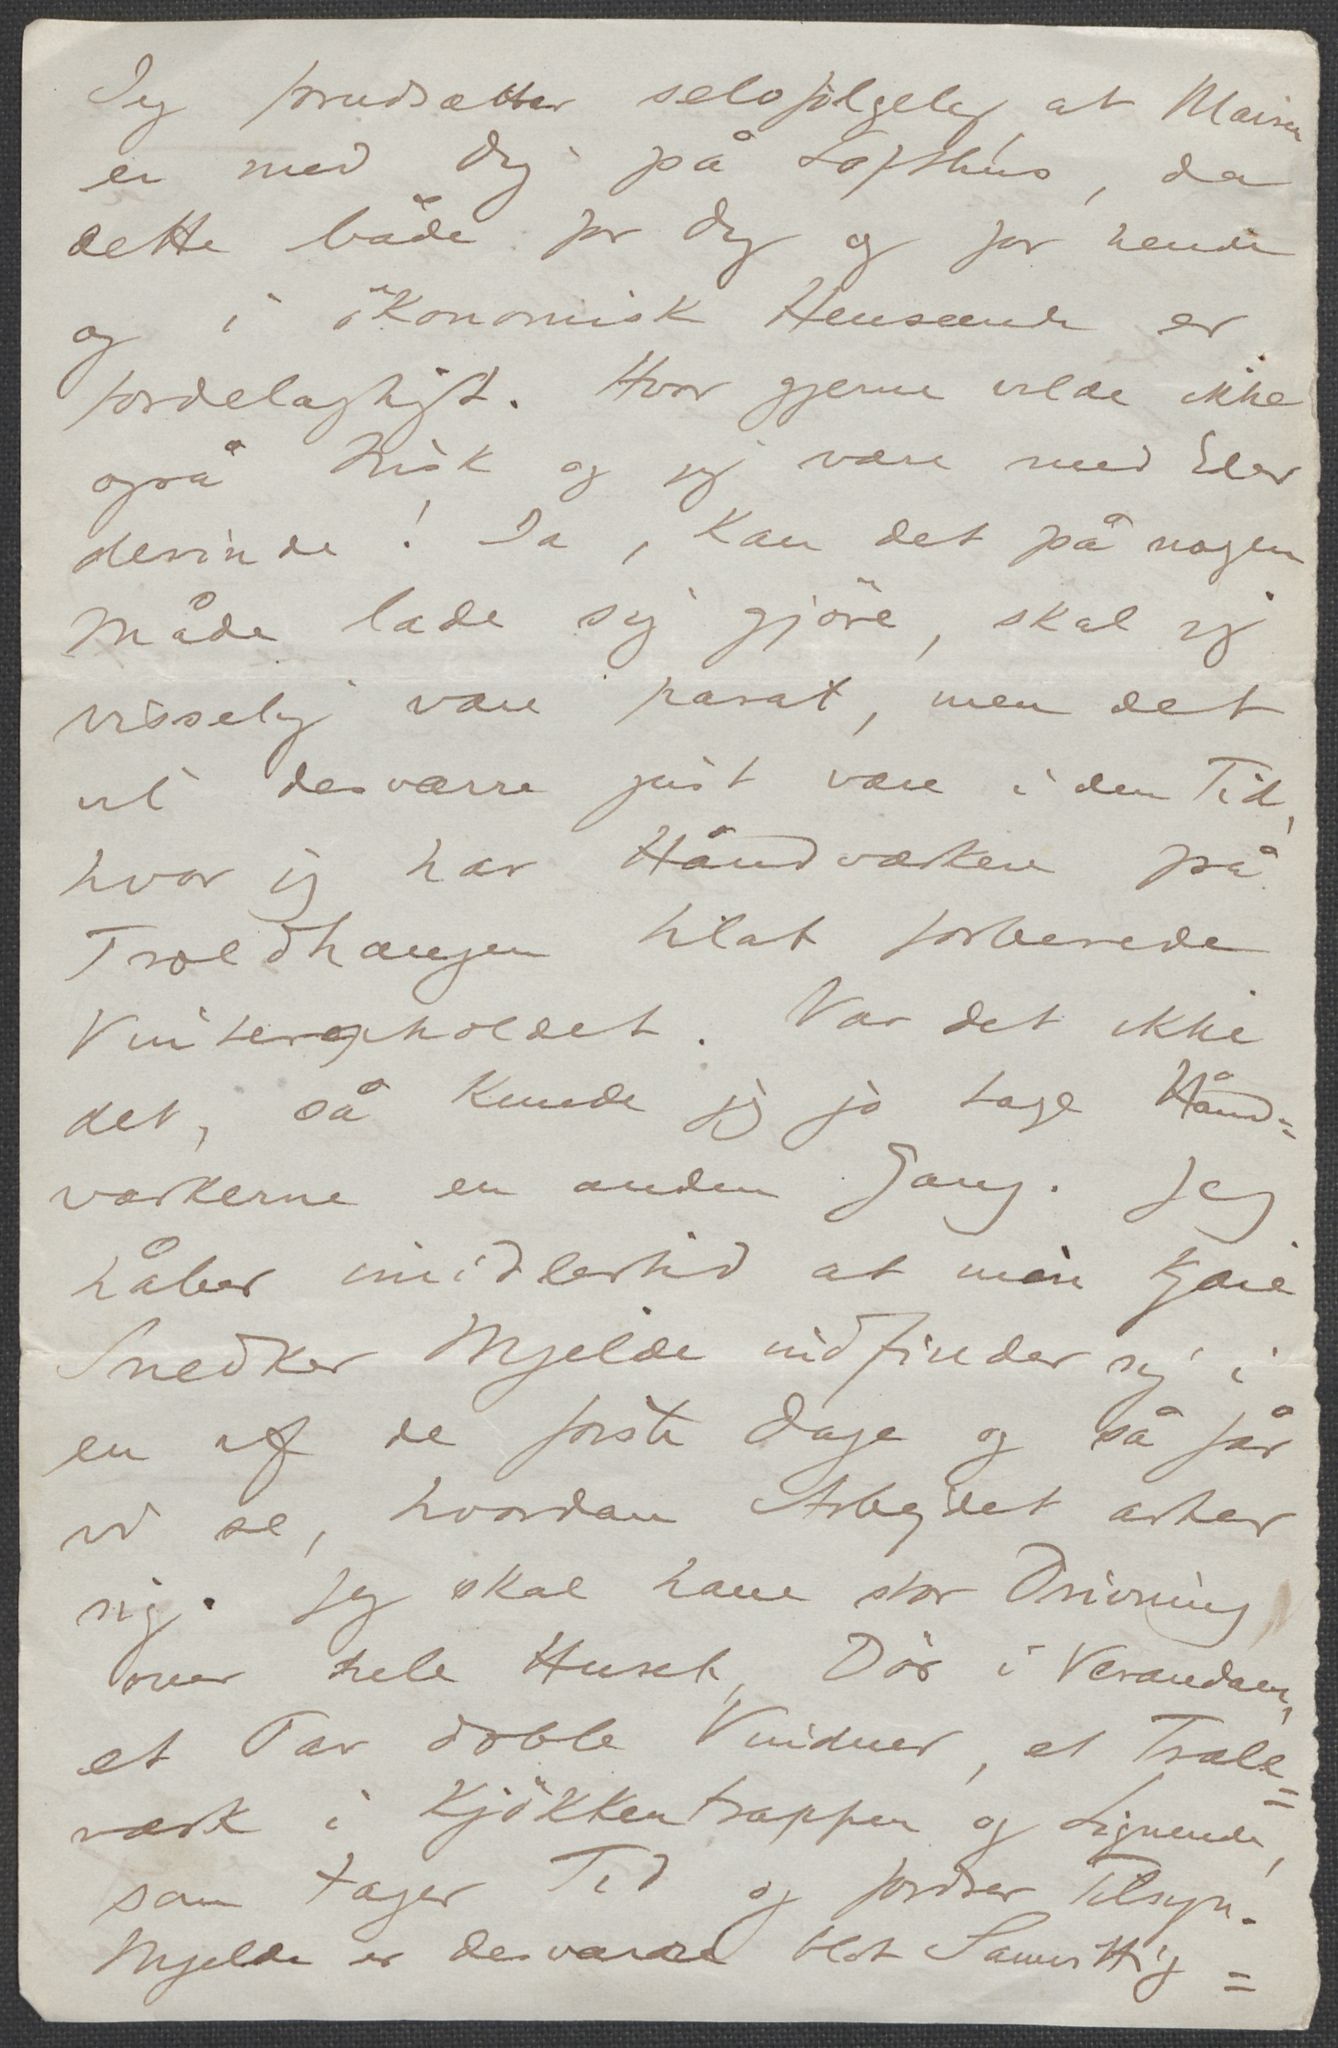 Jeg forudsætter selvfølgelig at Maisen
er med Dig på Lofthus, da
dette både for Dig og for hende
og i økonomisk Henseende er
fordelagtigt. Hvor gjerne vilde ikke
også Frisk og jeg være med Eder
derinde! Ja, kan det på nogen
Måde lade sig gjöre, skal jeg
visselig være parat, men det
vil desværre just være i den Tid,
hvor jeg har Håndværkere på
Troldhaugen til at forberede
Vinteropholdet. Var det ikke
det, så kunde jeg jo tage Hånd=
værkerne en anden Gang. Jeg
håber imidlertid at min kjære
Snedker Mjelde indfinder sig i
en af de første Dage og så får
vi se, hvordan Arbejdet arter
sig. Jeg skal have stor Drivning
over hele Huset, Dör i Verandaen,
et Par doble Vinduer, et Tralle=
værk i Kjökkentrappen og Lignende,
som tager Tid og fordrer Tilsyn.
Mjelde er desværre blot Samvittig=